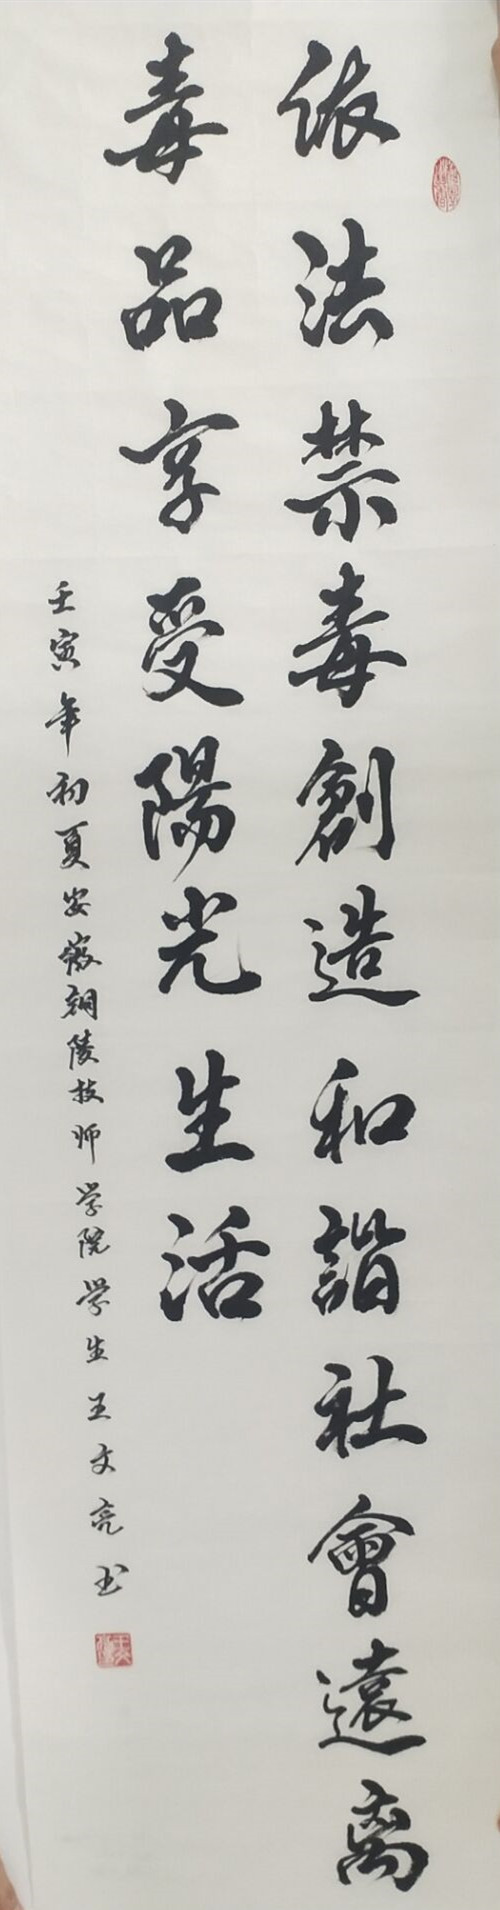 依法禁毒創造和諧社會遠离
毒品享受陽光生活
壬寅年初夏安徽銅陵技师学院学生王文亮书